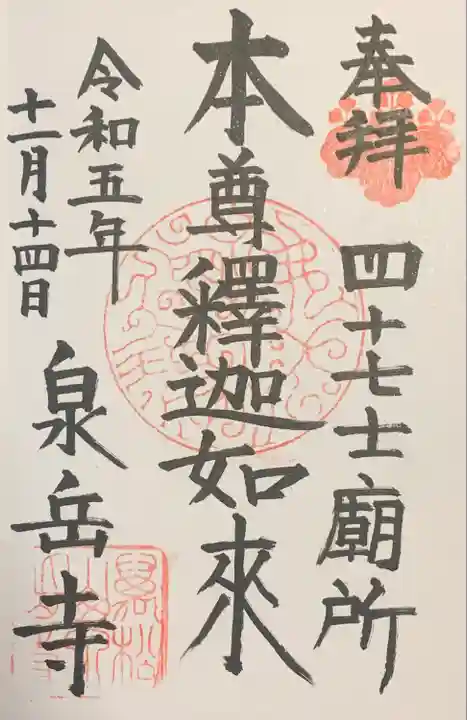 奉拜 四十七士廟所
本尊釋迦如來
令和五年
十一月十四日
泉岳寺